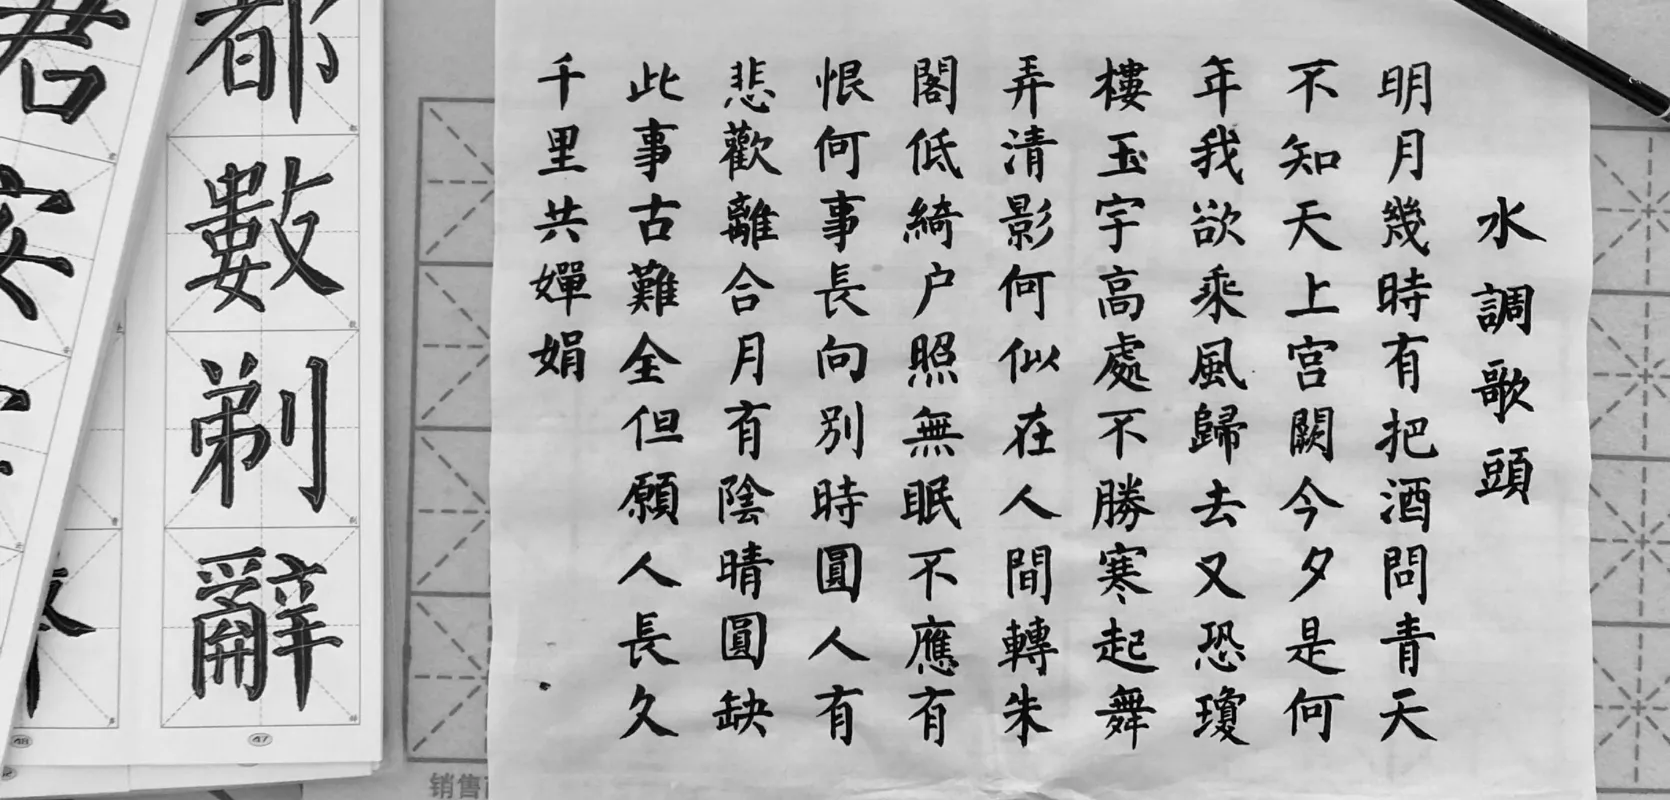 水調歌頭
明月幾時有把酒問青天
不知天上宫闕今夕是何
年我欲乘風歸去又恐瓊
樓玉宇高處不勝寒起舞
弄清影何似在人間轉朱
閣低綺户照無眠不應有
恨何事長向别時圓人有
悲歡離合月有陰晴圓缺
此事古難全但願人長久
千里共嬋娟
都數剃辭
47
君安
48
销售